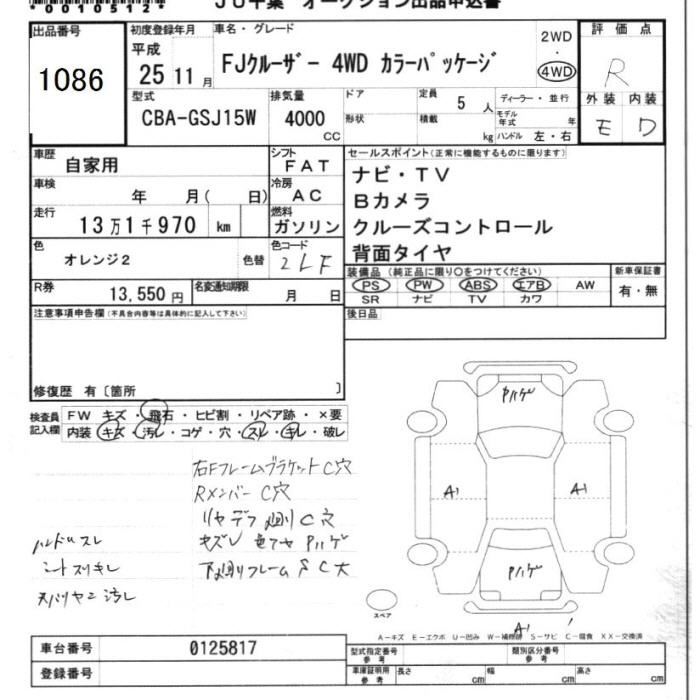 00105120
JU千葉 オークション出品申込書
出品番号
1086
初度登録年月
平成
25 11 月
車名・グレード
FJクルーザー 4WD カラーパッケージ
2WD
・
4WD
評価点
R
外装 内装
E D
型式
CBA-GSJ15W
排気量
4000
CC
ドア
形状
定員
5 人
積載
kg
ディーラー・並行
モデル年式 年
ハンドル 左・右
車歴
自家用
シフト
FAT
車検
年 月( 日)
冷房
AC
走行
13万1千970 km
燃料
ガソリン
色
オレンジ2
色替
色コード
2LF
R券
13,550 円
名変通知期限
月 日
セールスポイント(正常に機能するものに限ります)
ナビ・TV
Bカメラ
クルーズコントロール
背面タイヤ
装備品(純正品に限り○をつけてください)
PS PW ABS エアB AW
SR ナビ TV カワ
新車保証書
有・無
後日品
注意事項申告欄(不具合内容等は具体的に記入して下さい)
修復歴 有〔箇所 〕
検査員記入欄
FW キズ・飛石・ヒビ割・リペア跡・×要
内装 キズ・汚レ・コゲ・穴・スレ・キレ・破レ
右Fフレームブラケット C穴
Rメンバー C穴
リヤデフ廻り C穴
キズU 色アセ Pハゲ
下廻りフレーム S C大
ハンドルスレ
シートスリキレ
天バリヤニ汚レ
Pハゲ
A1
A1
Pハゲ
A1
スペア
A-キズ E-エクボ U-凹み W-補修跡 S-サビ C-腐食 XX-交換済
車台番号
0125817
登録番号
型式指定番号 参考
類別区分番号 参考
車庫証明用 参考
長さ cm
幅 cm
高さ cm